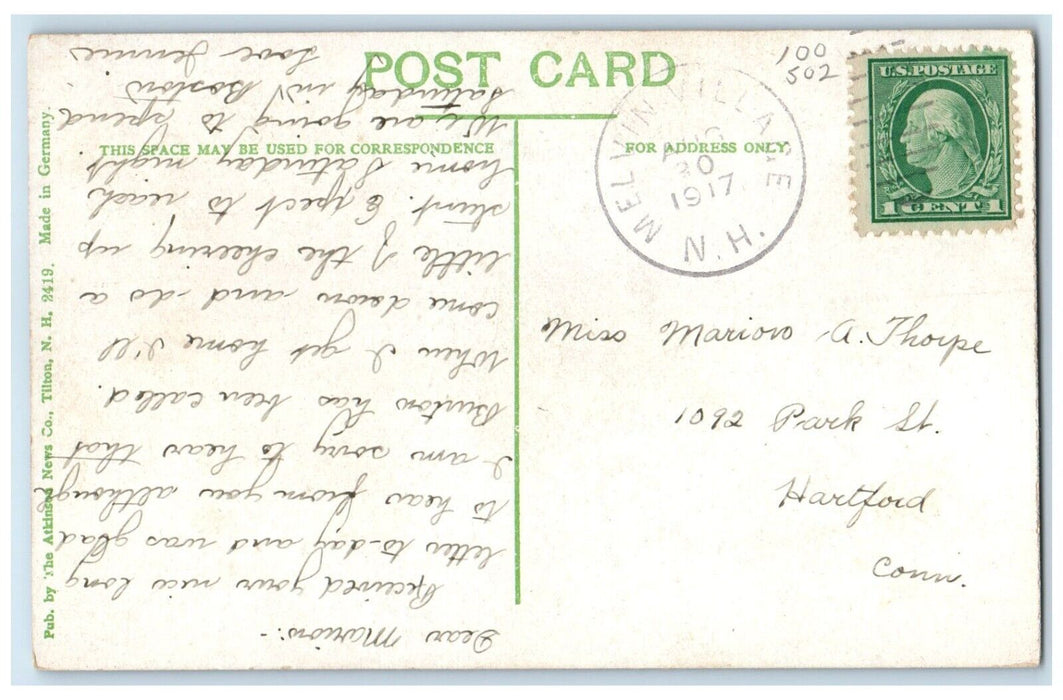 POST CARD
THIS SPACE MAY BE USED FOR CORRESPONDENCE
FOR ADDRESS ONLY
100
502
U.S. POSTAGE
1 CENT 1
MELVIN VILLAGE
AUG
30
1917
N.H.
Miss Marion A. Thorpe
1092 Park St.
Hartford
Conn.
Dear Marion:-
Received your nice long
letter to-day and was glad
to hear from you although
I am sorry to hear that
Burton has been called.
When I get home I'll
come down and do a
little of the cheering up
stunt. Expect to reach
home Saturday night
We are going to spend
Saturday in Boston
Love Jennie
Pub. by The Atkinson News Co., Tilton, N. H. 2419. Made in Germany.